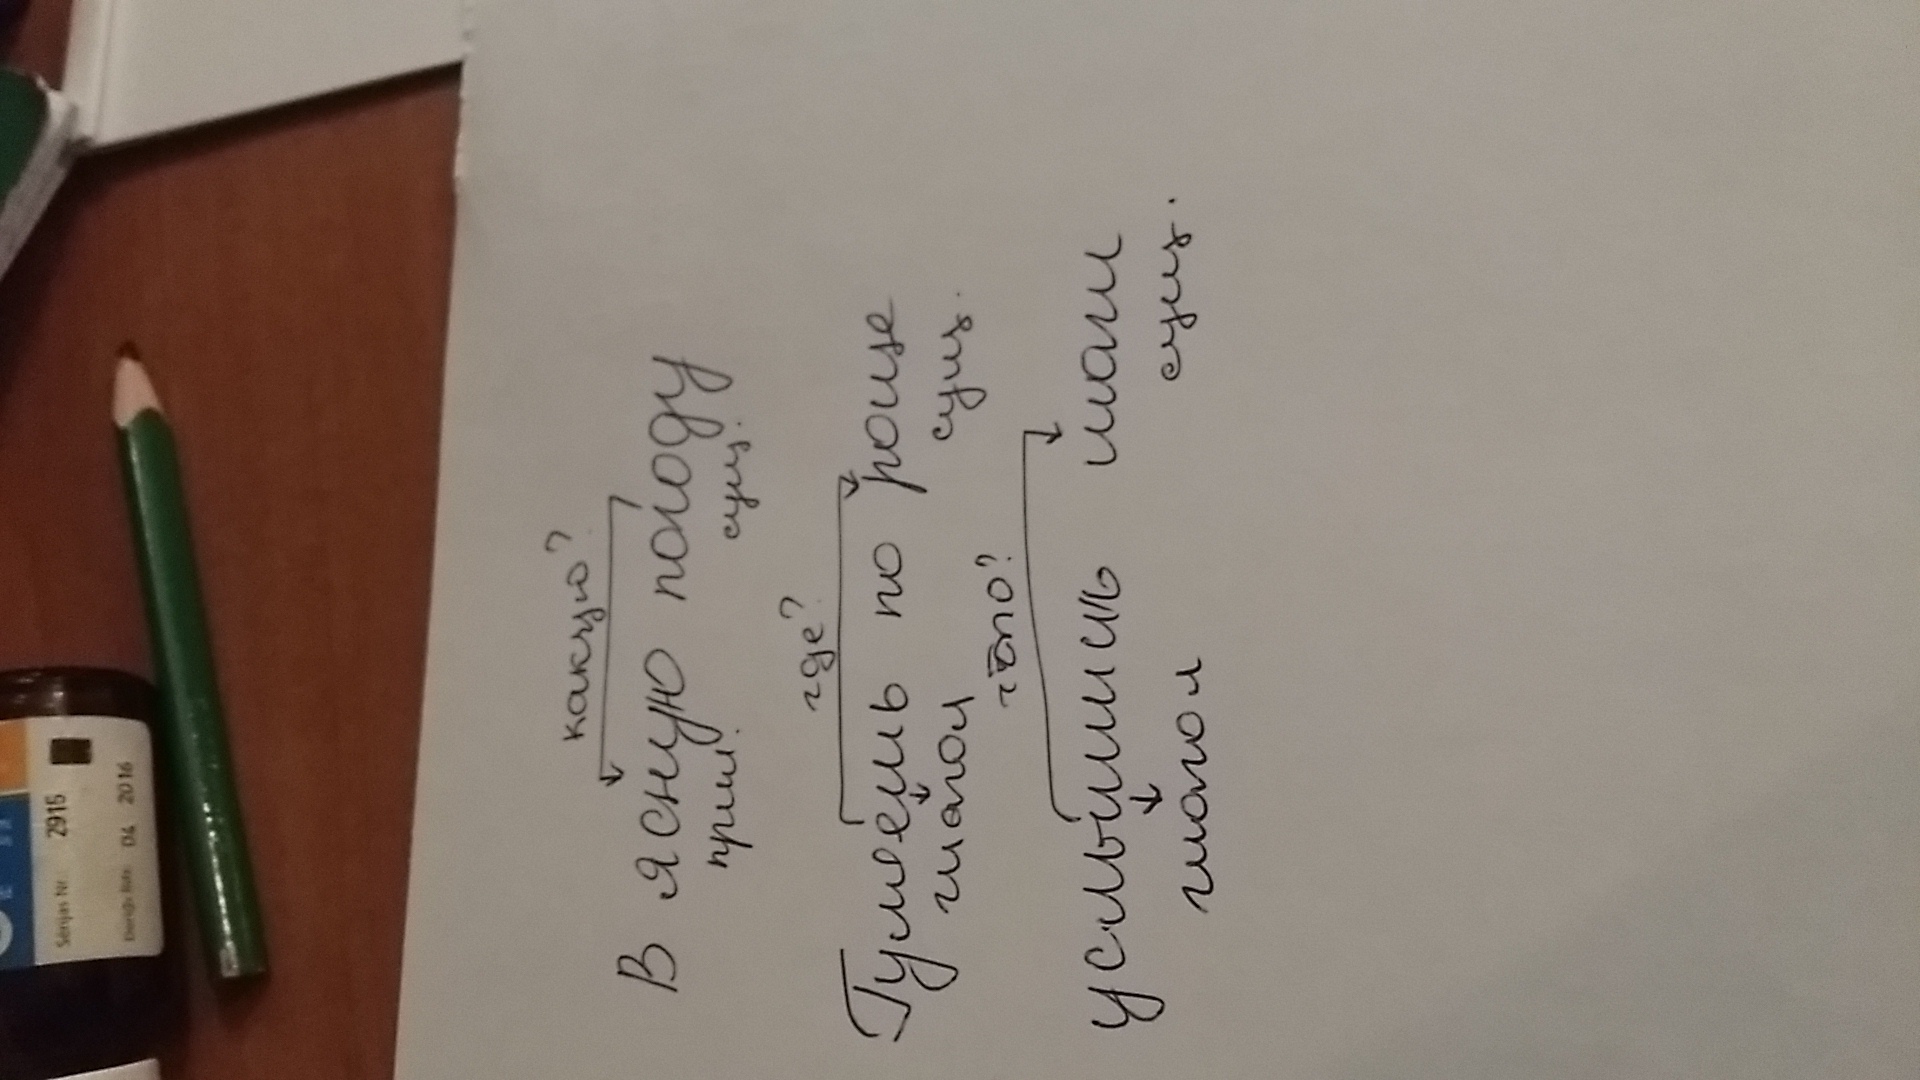 какую?
В ясную погоду
прил. сущ.
где?
Гуляешь по роще
глагол сущ.
что?
услышишь шаги
глагол сущ.
Sērijas Nr. 2915
04 2016